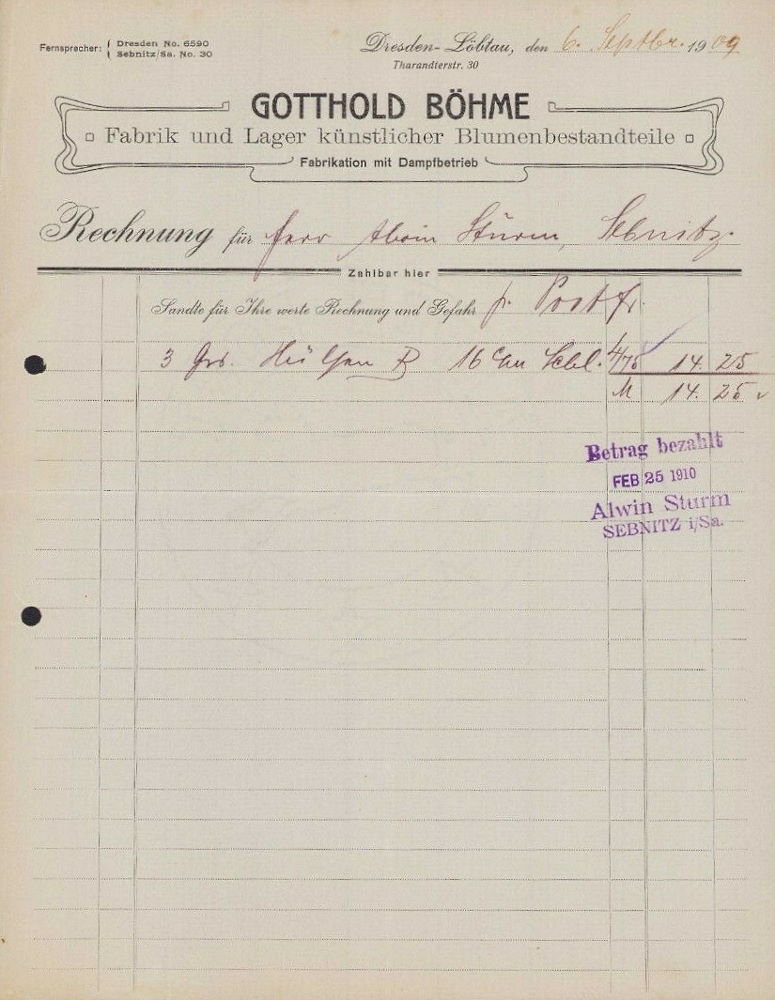 Fernsprecher: { Dresden No. 6590
Sebnitz/Sa. No. 30
Dresden-Löbtau, den 6. Septbr. 1909
Tharandterstr. 30
GOTTHOLD BÖHME
Fabrik und Lager künstlicher Blumenbestandteile
Fabrikation mit Dampfbetrieb
Rechnung für Herr Alwin Sturm, Sebnitz.
Zahlbar hier
Sandte für Ihre werte Rechnung und Gefahr p. Post fr.
3 Grs. Hülsen B 16 c/m 4/75 14. 25
M 14. 25
Betrag bezahlt
FEB 25 1910
Alwin Sturm
SEBNITZ i/Sa.